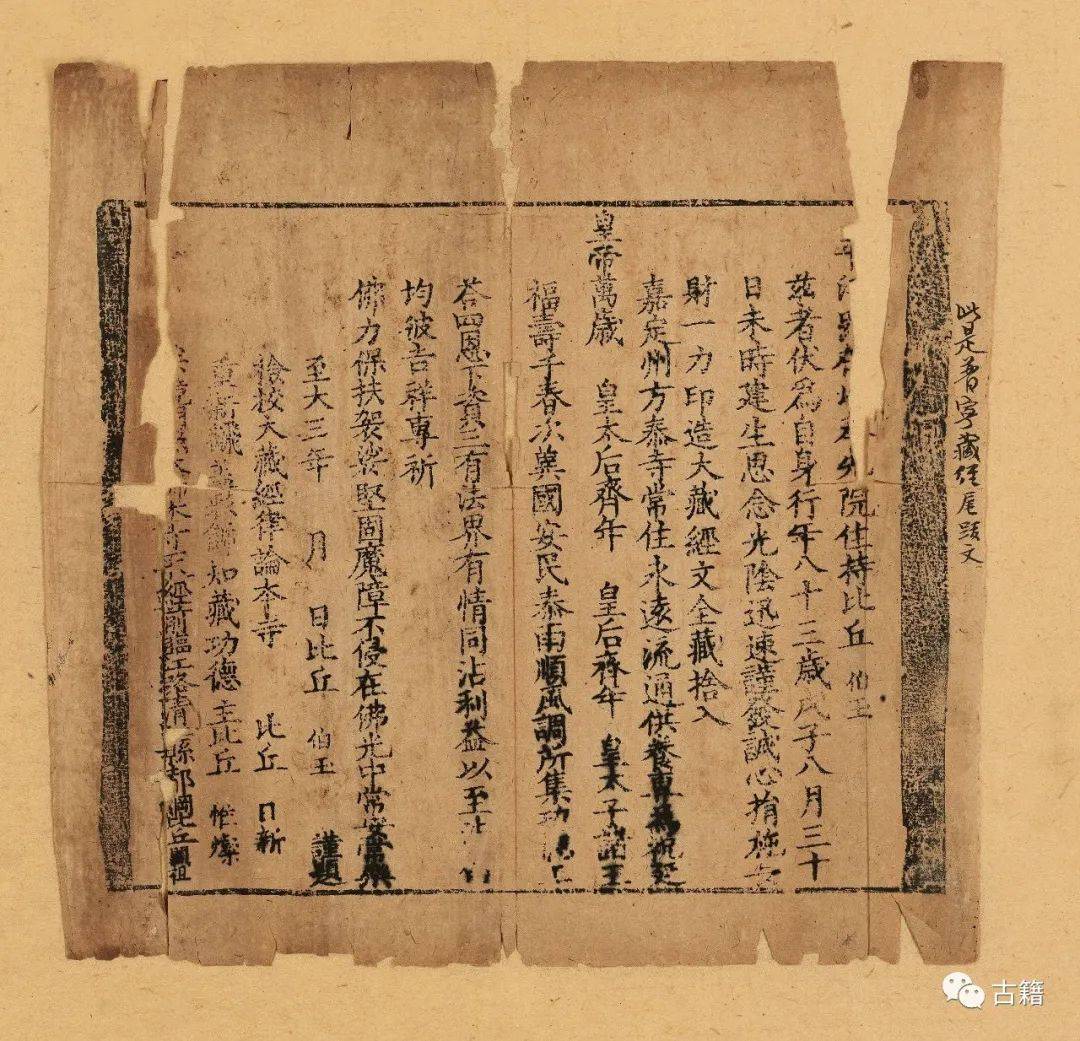 此是普寧藏經尾題文
院住持比丘 伯玉
茲者伏為自身行年八十三歲戊子八月三十
日未時建生思念光陰迅速謹發誠心捐施
財一力印造大藏經文全藏捨入
嘉定州方泰寺常住永遠流通供養專為祝延
皇帝萬歲 皇太后齊年 皇后齊年 皇太子諸王
福壽千春次冀國安民泰雨順風調所集功德上
荅四恩下資三有法界有情同沾利益以至
均彼吉祥專祈
佛力保扶袈裟堅固魔障不侵在佛光中常安常樂
至大三年 月 日比丘 伯玉 謹題
檢校大藏經律論本寺 比丘 日新
重 知藏功德主比丘 惟燦
前臨江路清 縣都綱比丘 祖
古籍